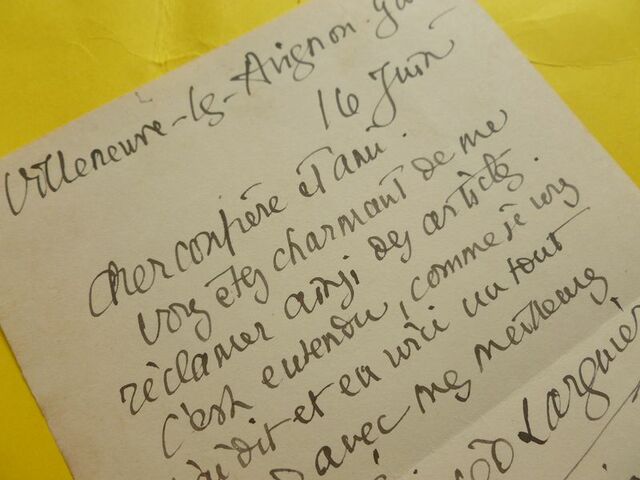 Villeneuve-lès-Avignon. Ga
16 Juin
Cher confrère et ami.
Vous êtes charmant de me
réclamer ainsi des articles.
C'est entendu, comme je vous
l'ai dit et en voici un tout
avec mes meilleurs
Larguier